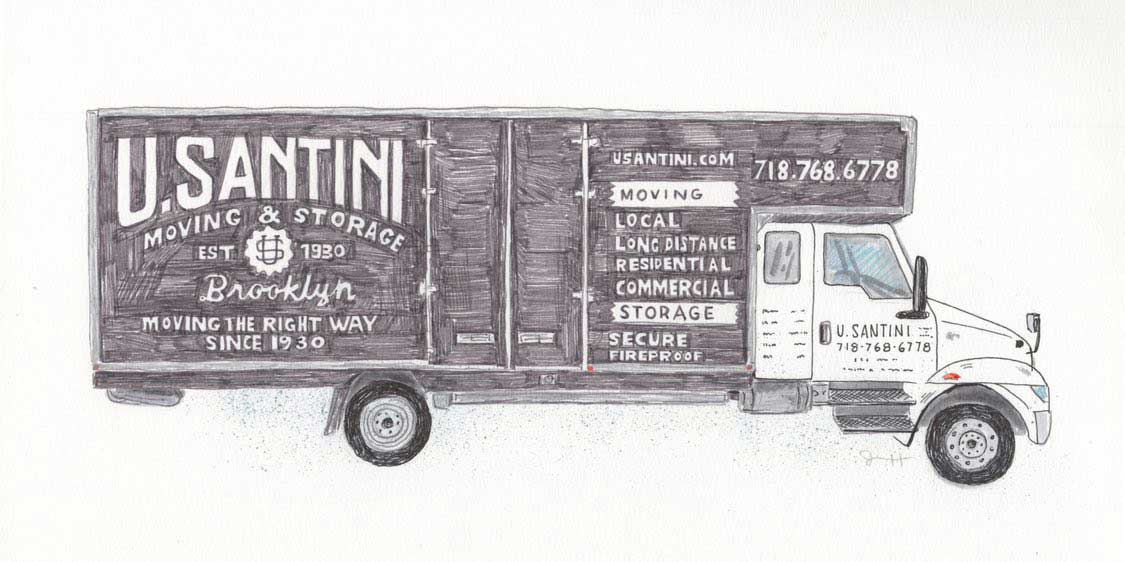 U.SANTINI
MOVING & STORAGE
EST US 1930
Brooklyn
MOVING THE RIGHT WAY
SINCE 1930
USANTINI.COM
718.768.6778
MOVING
LOCAL
LONG DISTANCE
RESIDENTIAL
COMMERCIAL
STORAGE
SECURE
FIREPROOF
U.SANTINI
718-768-6778